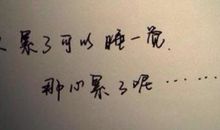 累了可以睡一觉.
那心累了呢……